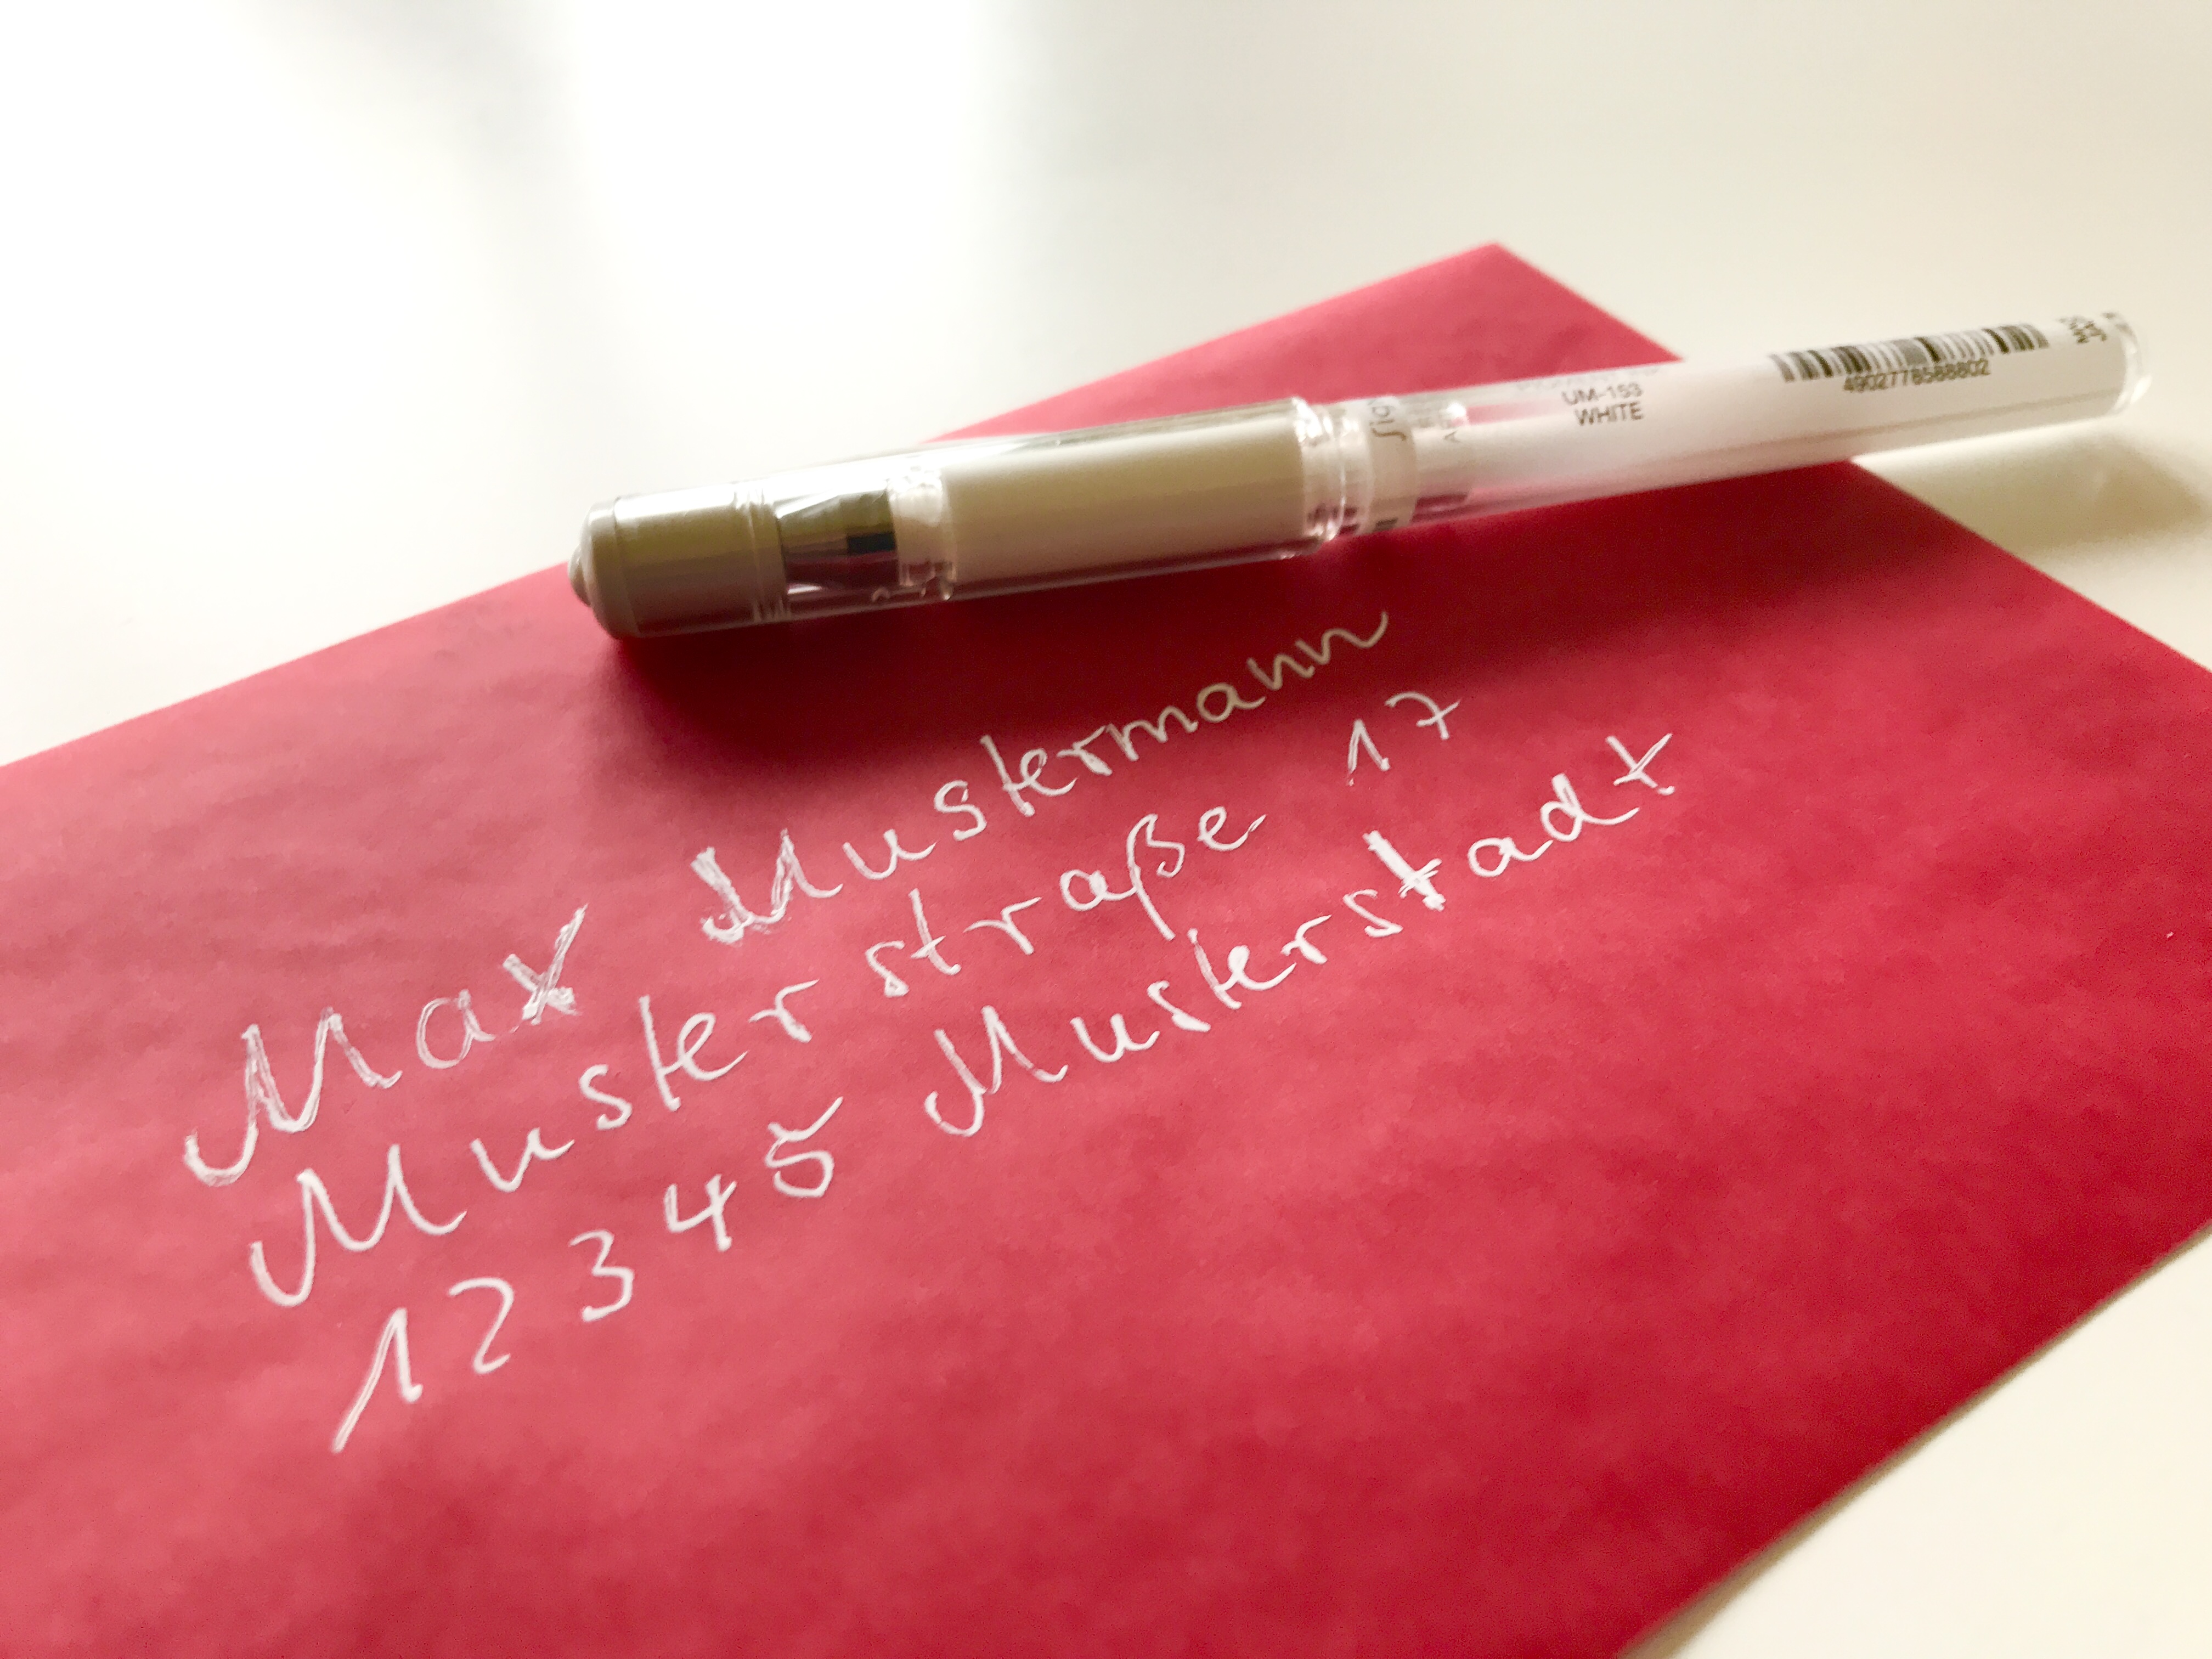 UM-153
WHITE
4902778588802
Max Mustermann
Musterstraße 17
12345 Musterstadt